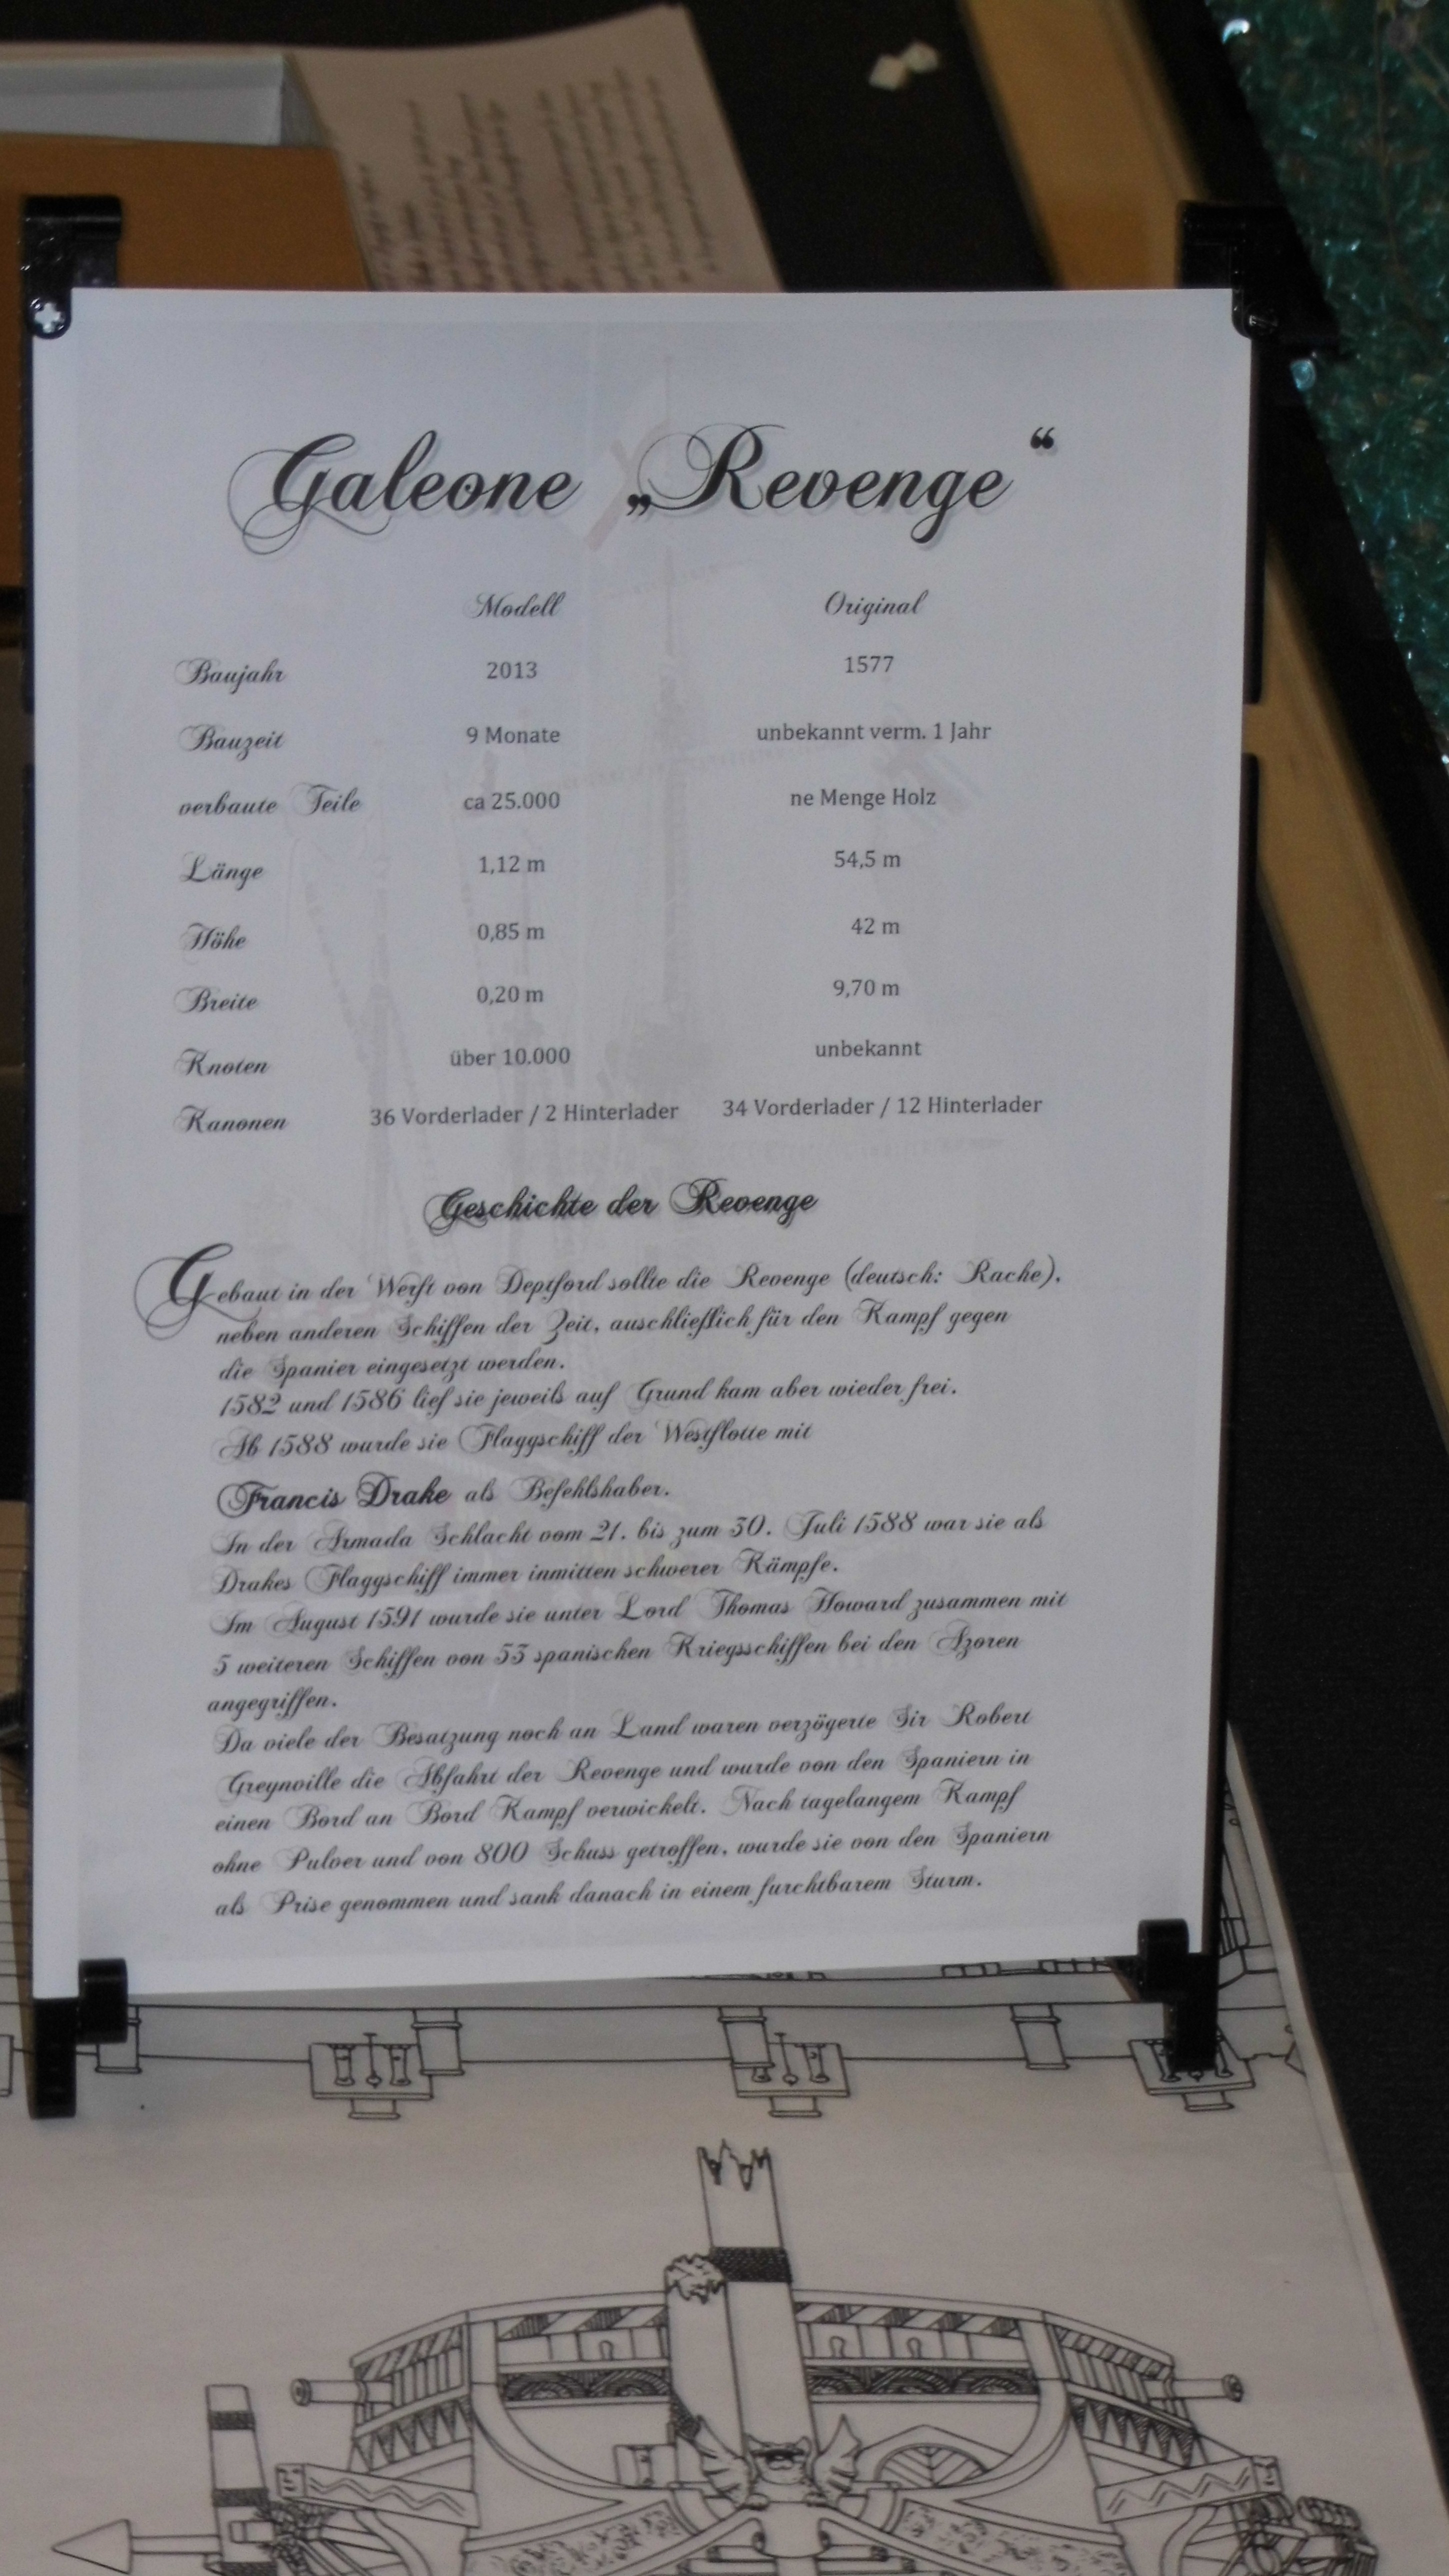 Galeone „Revenge“
Modell Original
Baujahr 2013 1577
Bauzeit 9 Monate unbekannt verm. 1 Jahr
verbaute Teile ca 25.000 ne Menge Holz
Länge 1,12 m 54,5 m
Höhe 0,85 m 42 m
Breite 0,20 m 9,70 m
Knoten über 10.000 unbekannt
Kanonen 36 Vorderlader / 2 Hinterlader 34 Vorderlader / 12 Hinterlader
Geschichte der Revenge
Gebaut in der Werft von Deptford sollte die Revenge (deutsch: Rache),
neben anderen Schiffen der Zeit, auschließlich für den Kampf gegen
die Spanier eingesetzt werden.
1582 und 1586 lief sie jeweils auf Grund kam aber wieder frei.
Ab 1588 wurde sie Flaggschiff der Westflotte mit
Francis Drake als Befehlshaber.
In der Armada Schlacht vom 21. bis zum 30. Juli 1588 war sie als
Drakes Flaggschiff immer inmitten schwerer Kämpfe.
Im August 1591 wurde sie unter Lord Thomas Howard zusammen mit
5 weiteren Schiffen von 53 spanischen Kriegsschiffen bei den Azoren
angegriffen.
Da viele der Besatzung noch an Land waren verzögerte Sir Robert
Greynville die Abfahrt der Revenge und wurde von den Spaniern in
einen Bord an Bord Kampf verwickelt. Nach tagelangem Kampf
ohne Pulver und von 800 Schuss getroffen, wurde sie von den Spaniern
als Prise genommen und sank danach in einem furchtbarem Sturm.